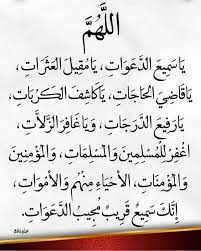 اللَّهُمَّ
يَا سَمِيعَ الدَّعَوَاتِ، يَا مُقِيلَ العَثَرَاتِ،
يَا قَاضِيَ الحَاجَاتِ، يَا كَاشِفَ الكُرُبَاتِ،
يَا رَفِيعَ الدَّرَجَاتِ، وَيَا غَافِرَ الزَّلَّاتِ،
اغْفِرْ لِلْمُسْلِمِينَ وَالْمُسْلِمَاتِ، وَالْمُؤْمِنِينَ
وَالْمُؤْمِنَاتِ، الأَحْيَاءِ مِنْهُمْ وَالأَمْوَاتِ،
إِنَّكَ سَمِيعٌ قَرِيبٌ مُجِيبُ الدَّعَوَاتِ.